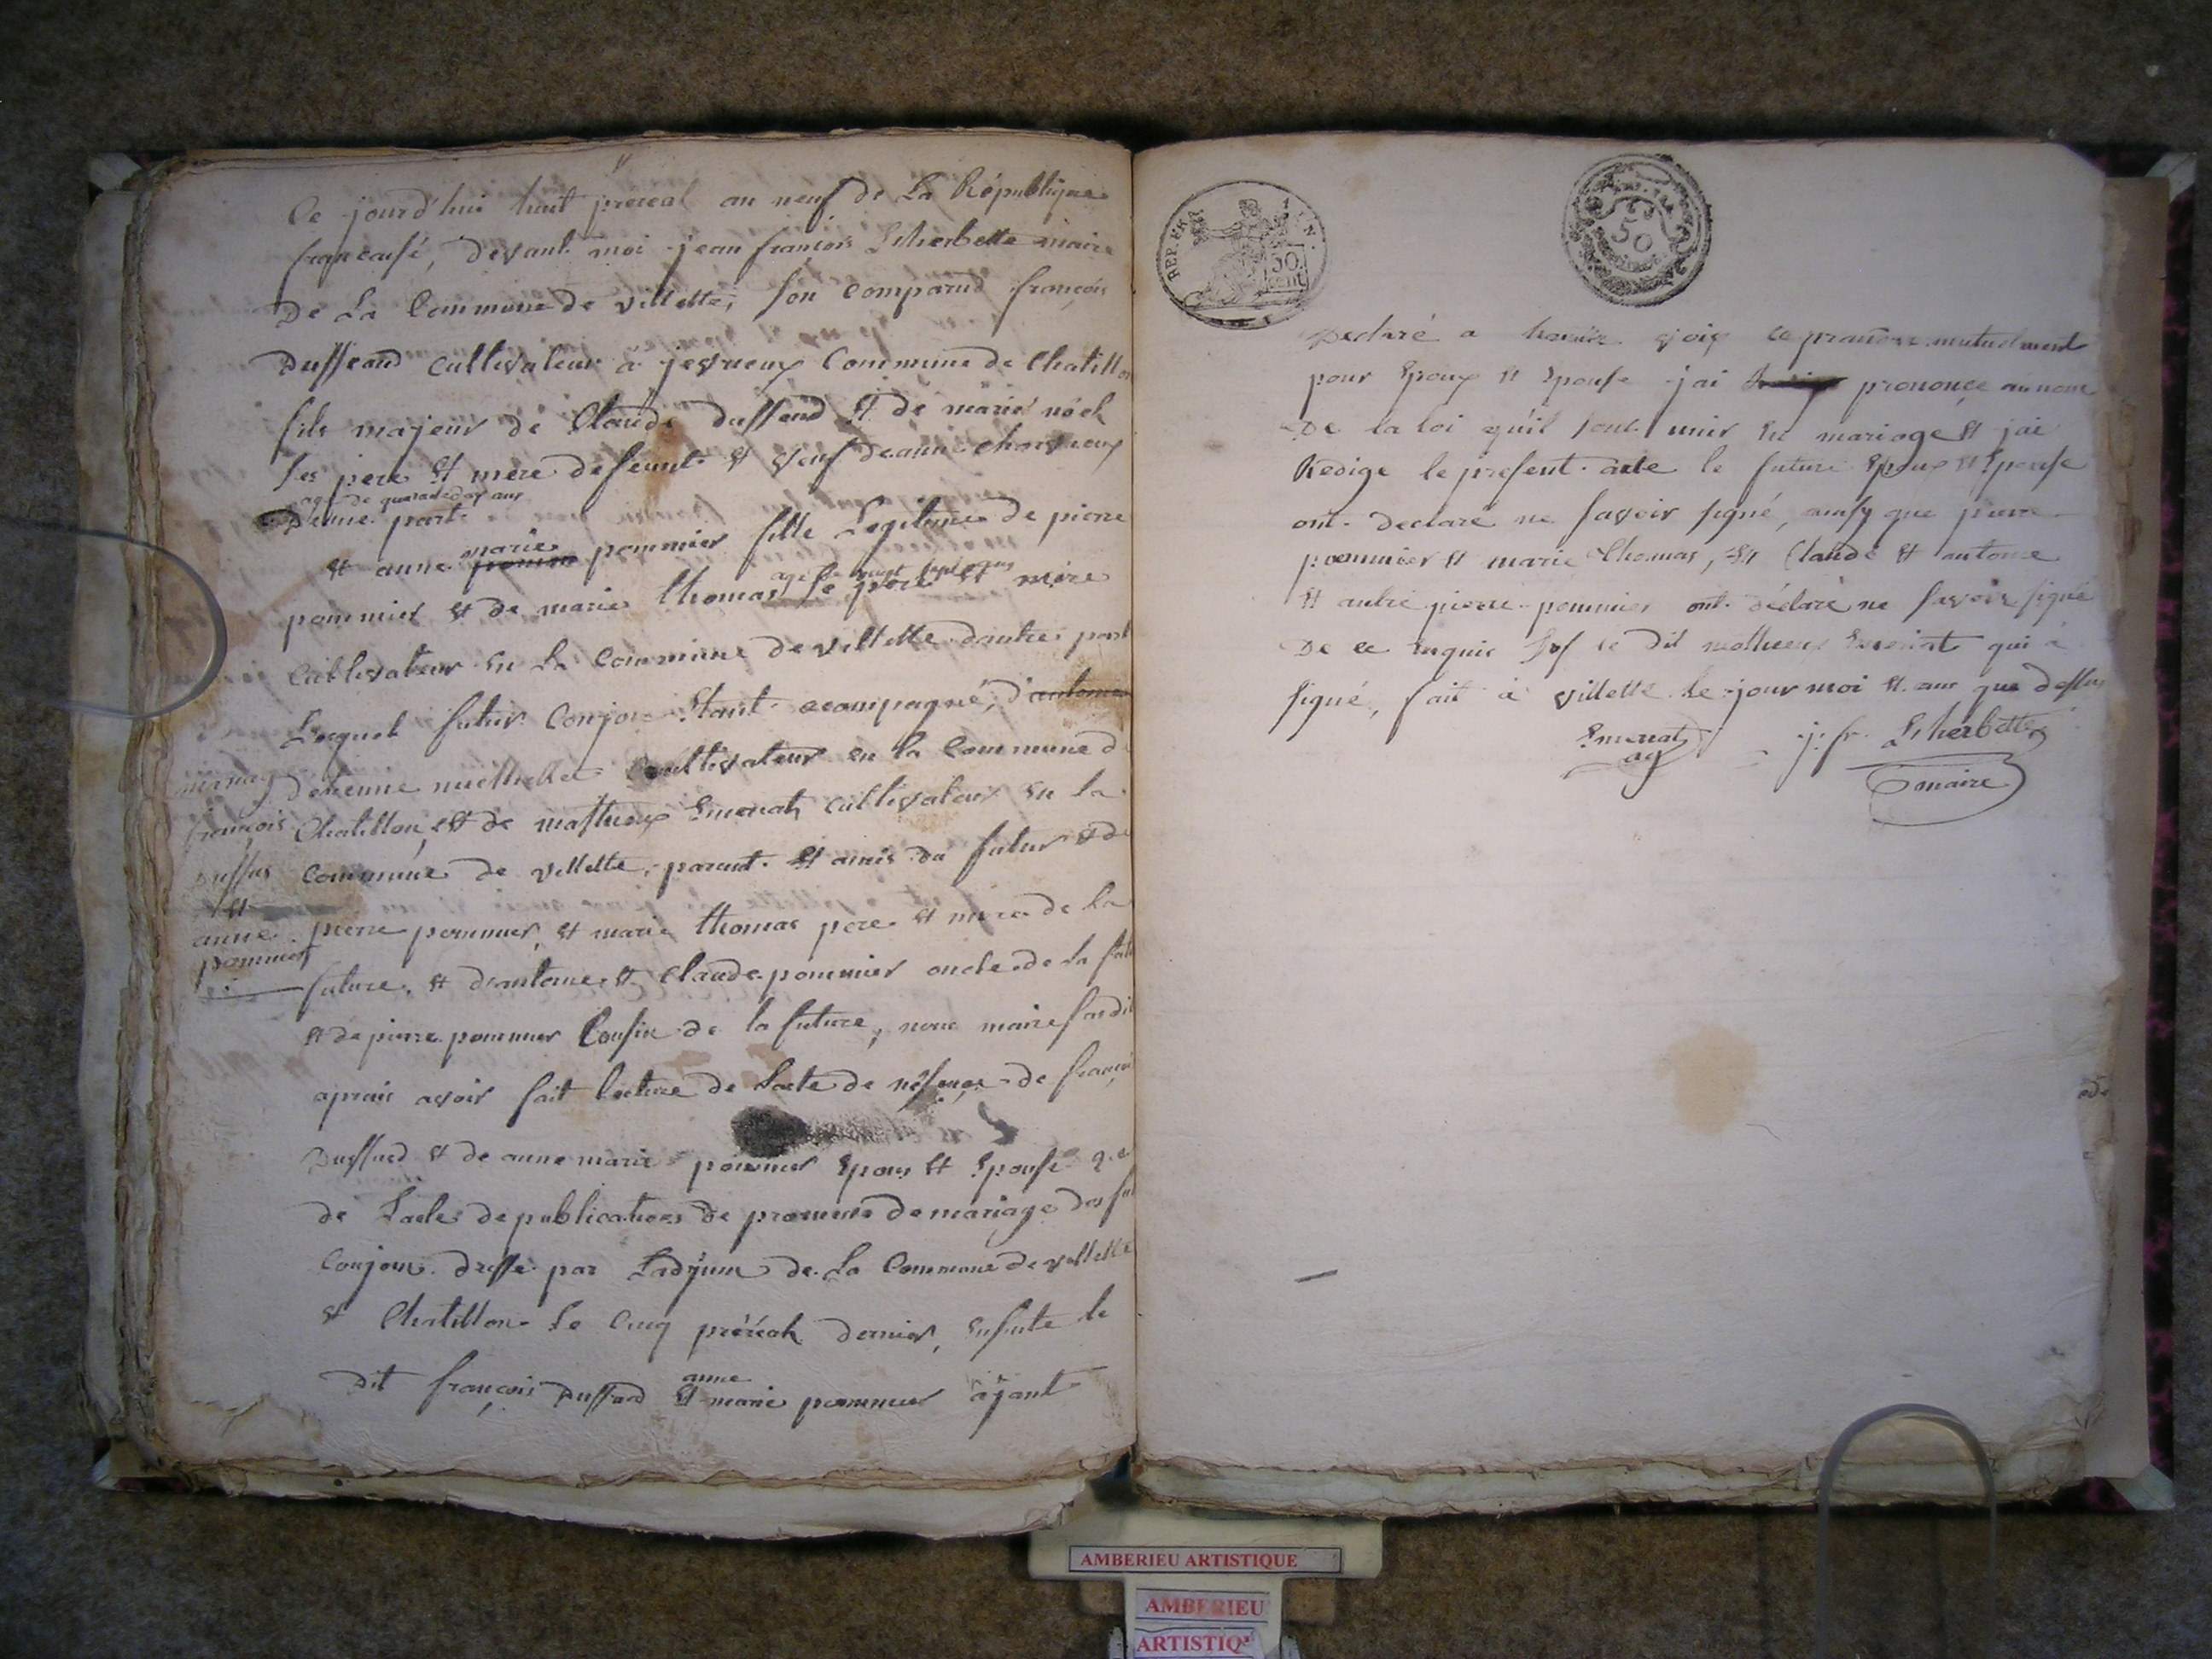 Ce jourd'hui huit prereal an neuf de La République
francaise, devant moi jean françois Lherbette maire
De La Commune de villette, son comparud françois
Duffeaud cultivateur a jevrieux Commune de Chatillon
fils majeur de Claude duffend et de marie nöel
ses pere et mere defeunt et veuf deanne
age de quarante dex ans
D'eune part
marie
et anne pommier fille Legitime de pierre
age de vingt sept ans
pommier et de marie thomas se pere et mere
Cultivateur en La Commune de villette dautre part
Lesquel futur Conjoin Etant acompagné, d'antoine
Detienne Cultivateur en la Commune d
mariag
françois
Duffus
et
anne
pommier
Chatillon, et de mathieux Emeriat, cultivateur en la
Commune de villette, parent et amis du futur et de
pierre pommier, et marie thomas pere et mere de la
future, et dantoine et Claude pommier oncle de la
et de pierre pommier Cousin de la future, nous maire
aprais avoir fait lecture de Lacte de de françoi
Duffued et de anne marie pommier Epoux et Epouse
de Lacte de publications de promesse de mariage des fu
Conjoin dresse par Ladjoin de La Commune de villette
et Chatillon Le Cinq préréal dernier, ensuite le
anne
Dit françois Duffard et marie pommier ajant
REP. FRA 50 cent
50
Declaré a haute voix ce prandre mutuelment
pour Epoux et Epouse jai prononçe au nom
De la loi qu'il sont unir en mariage et jai
Redige le present acte le future Epoux et Epouse
ont declaré ne savoir signé, ainsy que pierre
pommier et marie thomas, et Claude et antoine
et autre pierre pommier ont déclaré ne savoir signé
De ce enquis le dit mathieux Emeriat qui a
signé, fait à villette le jour moi et ans que dessus
Emeriat j. fr. Lherbette
ag maire
AMBERIEU ARTISTIQUE
AMBERIEU
ARTISTIQ